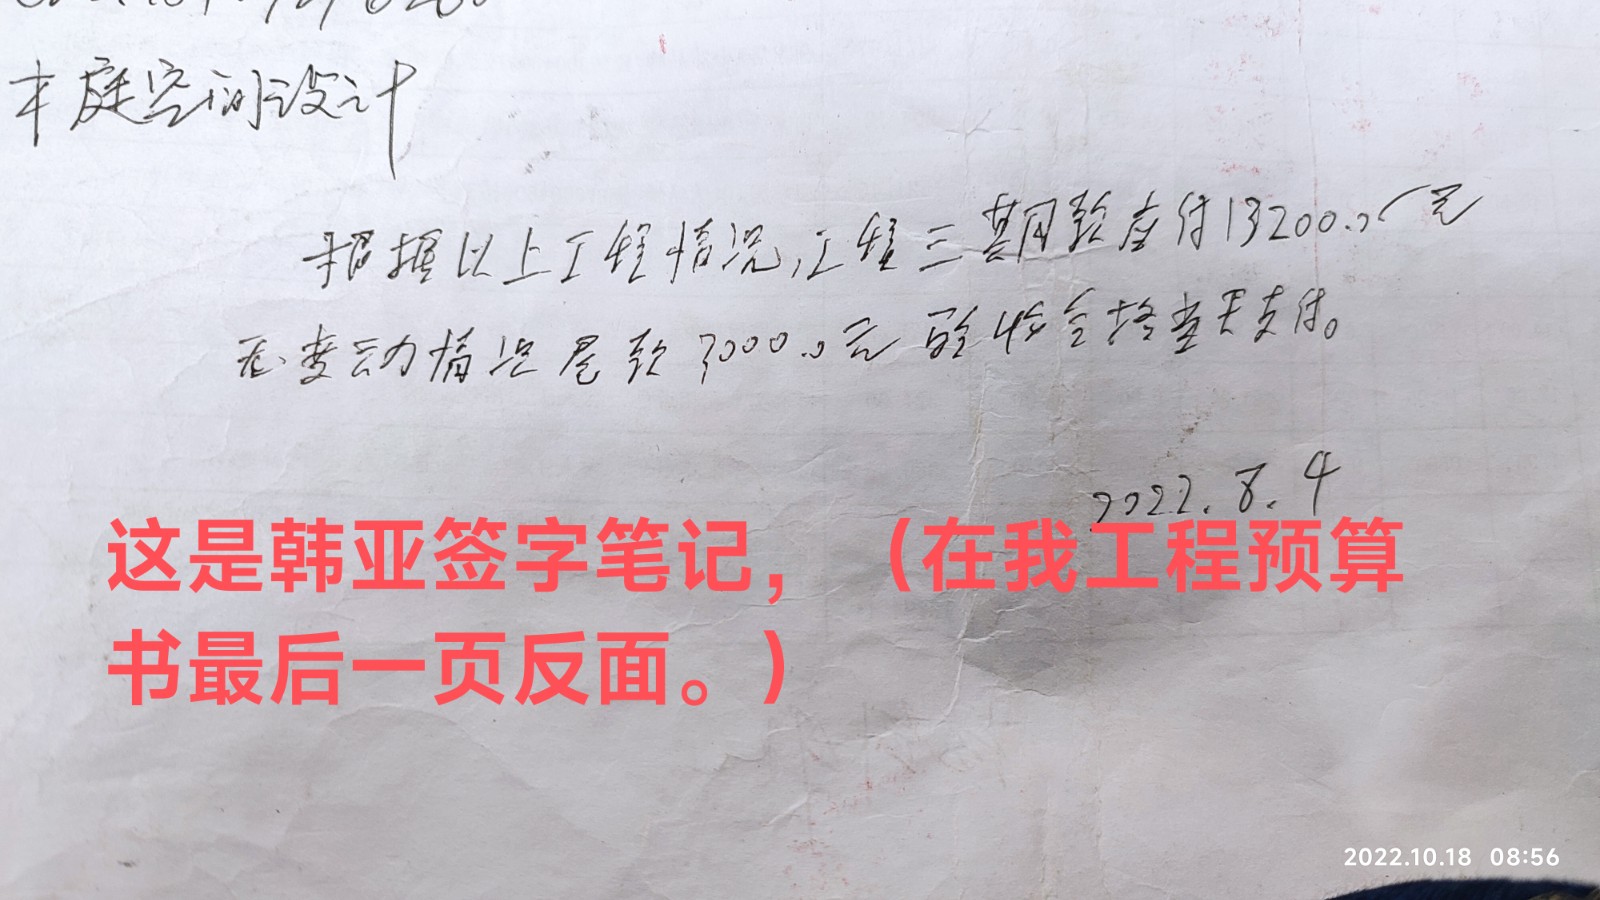 丰庭空间设计
根据以上工程情况,工程三期款应付13200.0元
无变动情况尾款3000.0元验收合格当天支付。
2022.8.4
这是韩亚签字笔记,(在我工程预算
书最后一页反面。)
2022.10.18 08:56